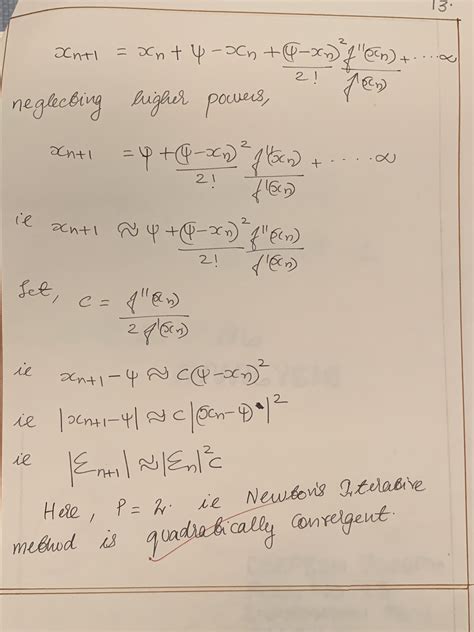 13.
xₙ₊₁ = xₙ + ψ - xₙ + (ψ-xₙ)²/2! f''(xₙ)/f'(xₙ) + ....∞
neglecting higher powers,
xₙ₊₁ = ψ + (ψ-xₙ)²/2! f''(xₙ)/f'(xₙ) + ....∞
ie xₙ₊₁ ≈ ψ + (ψ-xₙ)²/2! f''(xₙ)/f'(xₙ)
Let, c = f''(xₙ)/2f'(xₙ)
ie xₙ₊₁-ψ ≈ c(ψ-xₙ)²
ie |xₙ₊₁-ψ| ≈ c|(xₙ-ψ)|²
ie |Σₙ₊₁| ≈ |Σₙ|²c
Here, P = 2. ie Newton's Iterative
method is quadratically convergent.